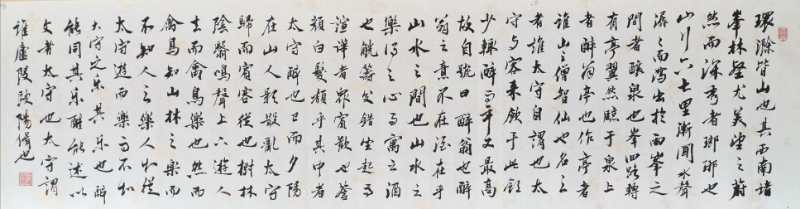 環滁皆山也其西南諸
峯林壑尤美望之蔚
然而深秀者瑯琊也
山行六七里漸聞水聲
潺潺而瀉出於兩峯之
間者釀泉也峯回路轉
有亭翼然臨于泉上
者醉翁亭也作亭者
誰山之僧智仙也名之
者誰太守自謂也太
守與客來飲于此飲
少輒醉而年又最高
故自號曰醉翁也醉
翁之意不在酒在乎
山水之間也山水之
樂得之心而寓之酒
也觥籌交錯坐起而
諠譁者眾賓歡也蒼
顏白髮頹乎其中者
太守醉也已而夕陽
在山人影散亂太守
歸而賓客從也樹林
陰翳鳴聲上下遊人
去而禽鳥樂也然而
禽鳥知山林之樂而
不知人之樂人知從
太守遊而樂而不知
太守之樂其樂也醉
能同其樂醒能述以
文者太守也太守謂
誰廬陵歐陽修也